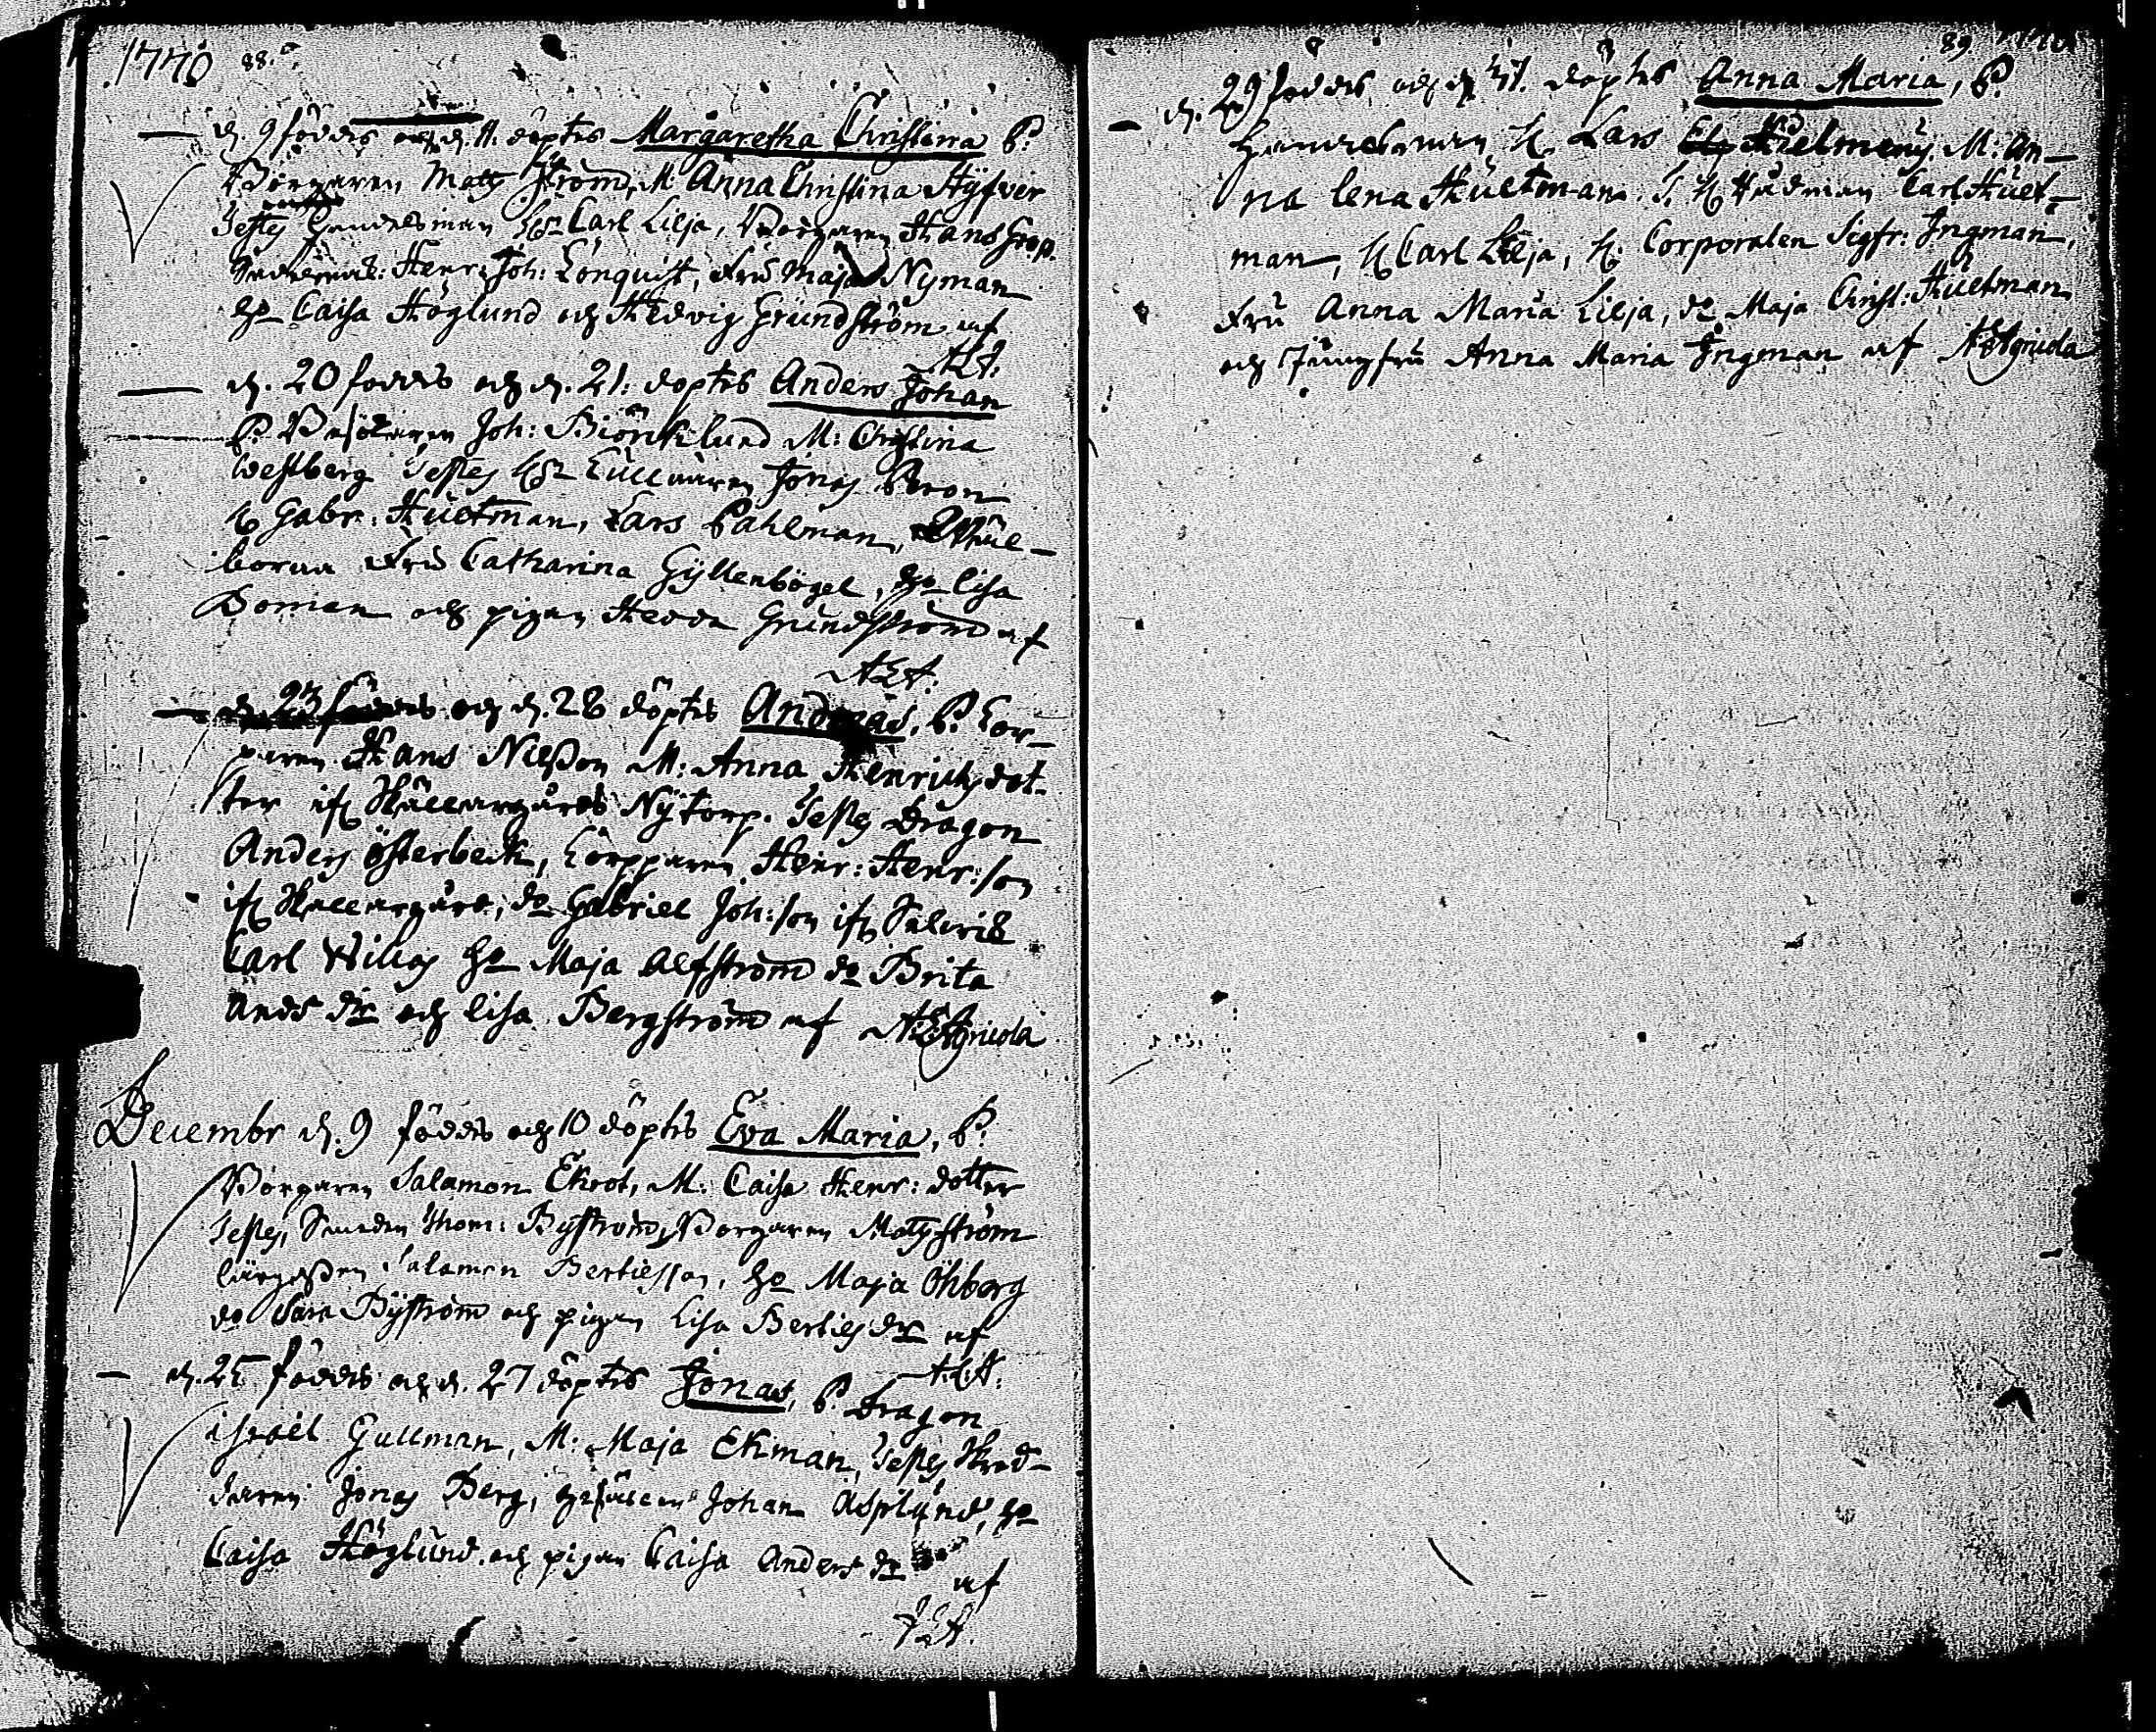 1770 88.
d. 9 föddes och d. 11. döptes Margaretha Christina P:
Borgaren Matts Ström, M: Anna Christina Styfver
Testes Handelsman Carl Lilja, Borgaren Hans
Henr: Joh: Lönquist, Fru Maja Nyman
Caisa Höglund och Hedvig Grundström af
A:L:A:
d. 20 föddes och d. 21: döptes Anders Johan
P: Joh: Biörklund M: Christina
Westberg Testes Jonas
H Gabr: Huctman, Lars Påhlman,
borna Fru Catharina Gyllenbögel, Lisa
Boman och pigan Hedda Grundström af
A:L:A:
d. 23 föddes och d. 28 döptes Andreas, P: Tor-
paren Hans Nilsson M: Anna Henrichs dot-
ter if Nytorp. Testes Dragon
Anders Österbeck, Torpparen Henr: Henr:son
if do Gabriel Joh:son if
Carl Maja Alfström do Brita
Ands dr och Lisa Bergström af A:L:Agricola
Decembr d. 9 föddes och 10 döptes Eva Maria, P:
Borgaren Salamon Ekrot, M: Caisa Henr: dotter
Testes, Smeden Thom: Byström, Borgaren Matts Ström
Salamon Bertilsson, Maja Öhberg
do Sara Byström och pigan Lisa Bertils dr af
A:L:A:
d. 25 föddes och d. 27 döptes Jonas, P: Dragon
Israël Gullman, M: Maja Ekman, Testes Skred-
daren Jonas Berg, Johan Asplund,
Caisa Höglund och pigan Caisa Anders dr af
89 1770
d. 29 föddes och d 31. döptes Anna Maria, P.
Handelsman H. Lars M: An-
na Lena Huctman. T. H Carl Huct-
man, H Carl Lilja, H. Corporalen Sigfr: Ingman,
Fru Anna Maria Lilja, do Maja Christ: Huctman
och Jungfru Anna Maria Ingman af A:L:Agricola